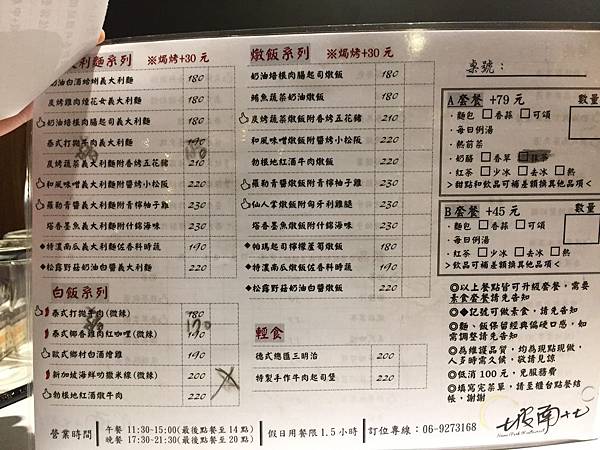 利麵系列 ※焗烤+30 元
奶油白酒蛤蜊義大利麵 180
炭烤雞肉煙花女義大利麵 180
奶油培根肉腸起司義大利麵 180
泰式打拋牛肉義大利麵 190
炭烤蔬菜義大利麵附香烤五花豬 210
和風味噌義大利麵附醬烤小松阪 220
羅勒青醬義大利麵附青檸柚子雞 230
塔香墨魚義大利麵附什錦海味 230
◆特濃南瓜義大利麵佐香料時蔬 190
◆松露野菇奶油白醬義大利麵 220
白飯系列
泰式打拋牛肉(微辣) 180 170
泰式椰香雞肉紅咖哩(微辣) 190
歐式鄉村白酒燉雞 190
新加坡海鮮叻撒米線(微辣) 200
勃根地紅酒燉牛肉 220
燉飯系列 ※焗烤+30 元
奶油培根肉腸起司燉飯 180
鮪魚蔬菜奶油燉飯 180
炭烤蔬菜燉飯附香烤五花豬 210
和風味噌燉飯附醬烤小松阪 220
勃根地紅酒牛肉燉飯 220
羅勒青醬燉飯附青檸柚子雞 230
仙人掌燉飯附匈牙利雞腿 230
塔香墨魚燉飯附什錦海味 230
◆帕瑪起司檸檬蘆筍燉飯 180
◆特濃南瓜燉飯佐香料時蔬 190
◆松露野菇奶油白醬燉飯 220
輕食
德式總匯三明治 200
特製手作牛肉起司堡 220
桌號：
A 套餐 +79 元 數量
·麵包 □香蒜 □可頌
·每日例湯
·熱前菜
·奶酪 □香草
·紅茶 □少冰 □去冰 □熱
>甜點和飲品可補差額換其他品項<
B 套餐 +45 元 數量
·麵包 □香蒜 □可頌
·每日例湯
·紅茶 □少冰 □去冰 □熱
>飲品可補差額換其他品項<
◎以上餐點皆可升級套餐，需要
素食套餐請先告知
◎◆記號可做素食，請先告知
◎麵、飯保留經典偏硬口感，如
需調整請先告知
◎為維護品質，均為現點現做，
人多時需久候，敬請見諒
◎低消 100 元，免服務費
◎填寫完菜單，請至櫃台點餐結
帳，謝謝
營業時間 午餐 11:30-15:00(最後點餐至 14 點)
晚餐 17:30-21:30(最後點餐至 20 點)
假日用餐限 1.5 小時 訂位專線：06-9273168